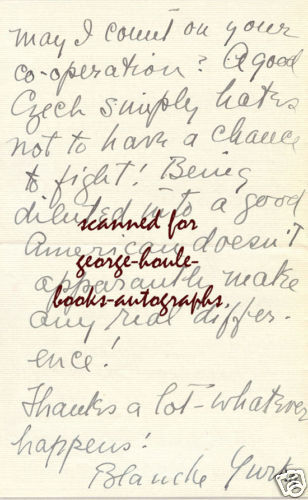 may I count on your
co-operation? A good
Czech simply hates
not to have a chance
to fight! Being
diluted into a good
scanned for
American doesn't
george-houle-
apparantly make
books-autographs
any real differ-
ence!
Thanks a lot-whatever
happens!
Blanche Yurka